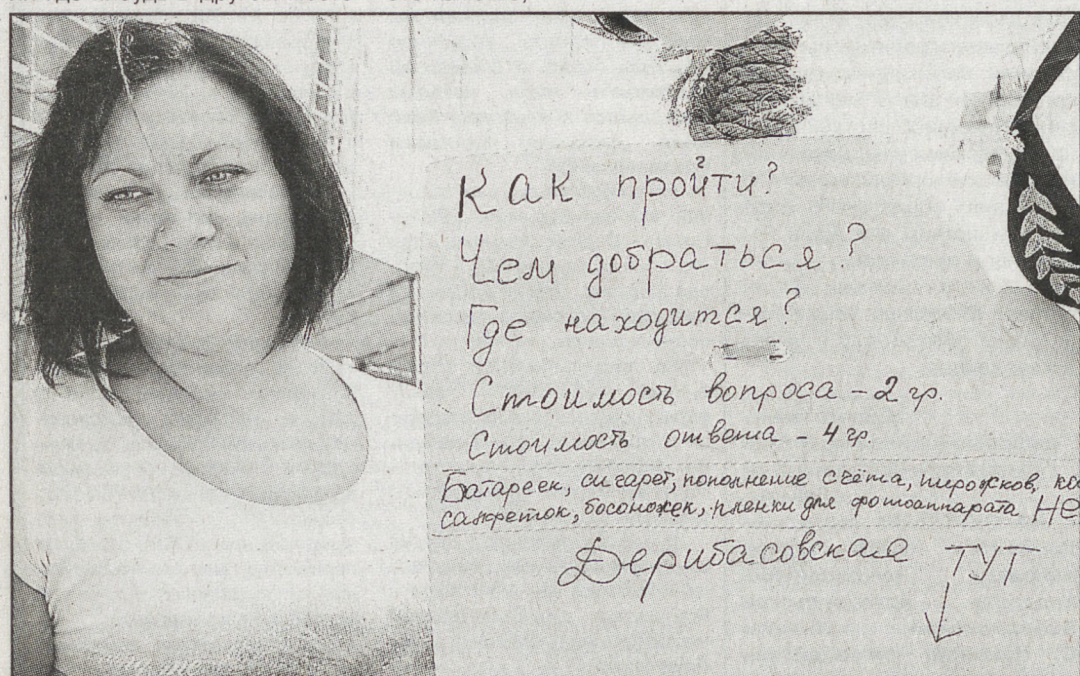 Как пройти?
Чем добраться?
Где находится?
Стоимость вопроса – 2 гр.
Стоимость ответа – 4 гр.
Батареек, сигарет, пополнение счёта, пирожков,
салфеток, босоножек, пленки для фотоаппарата
Дерибасовская ТУТ